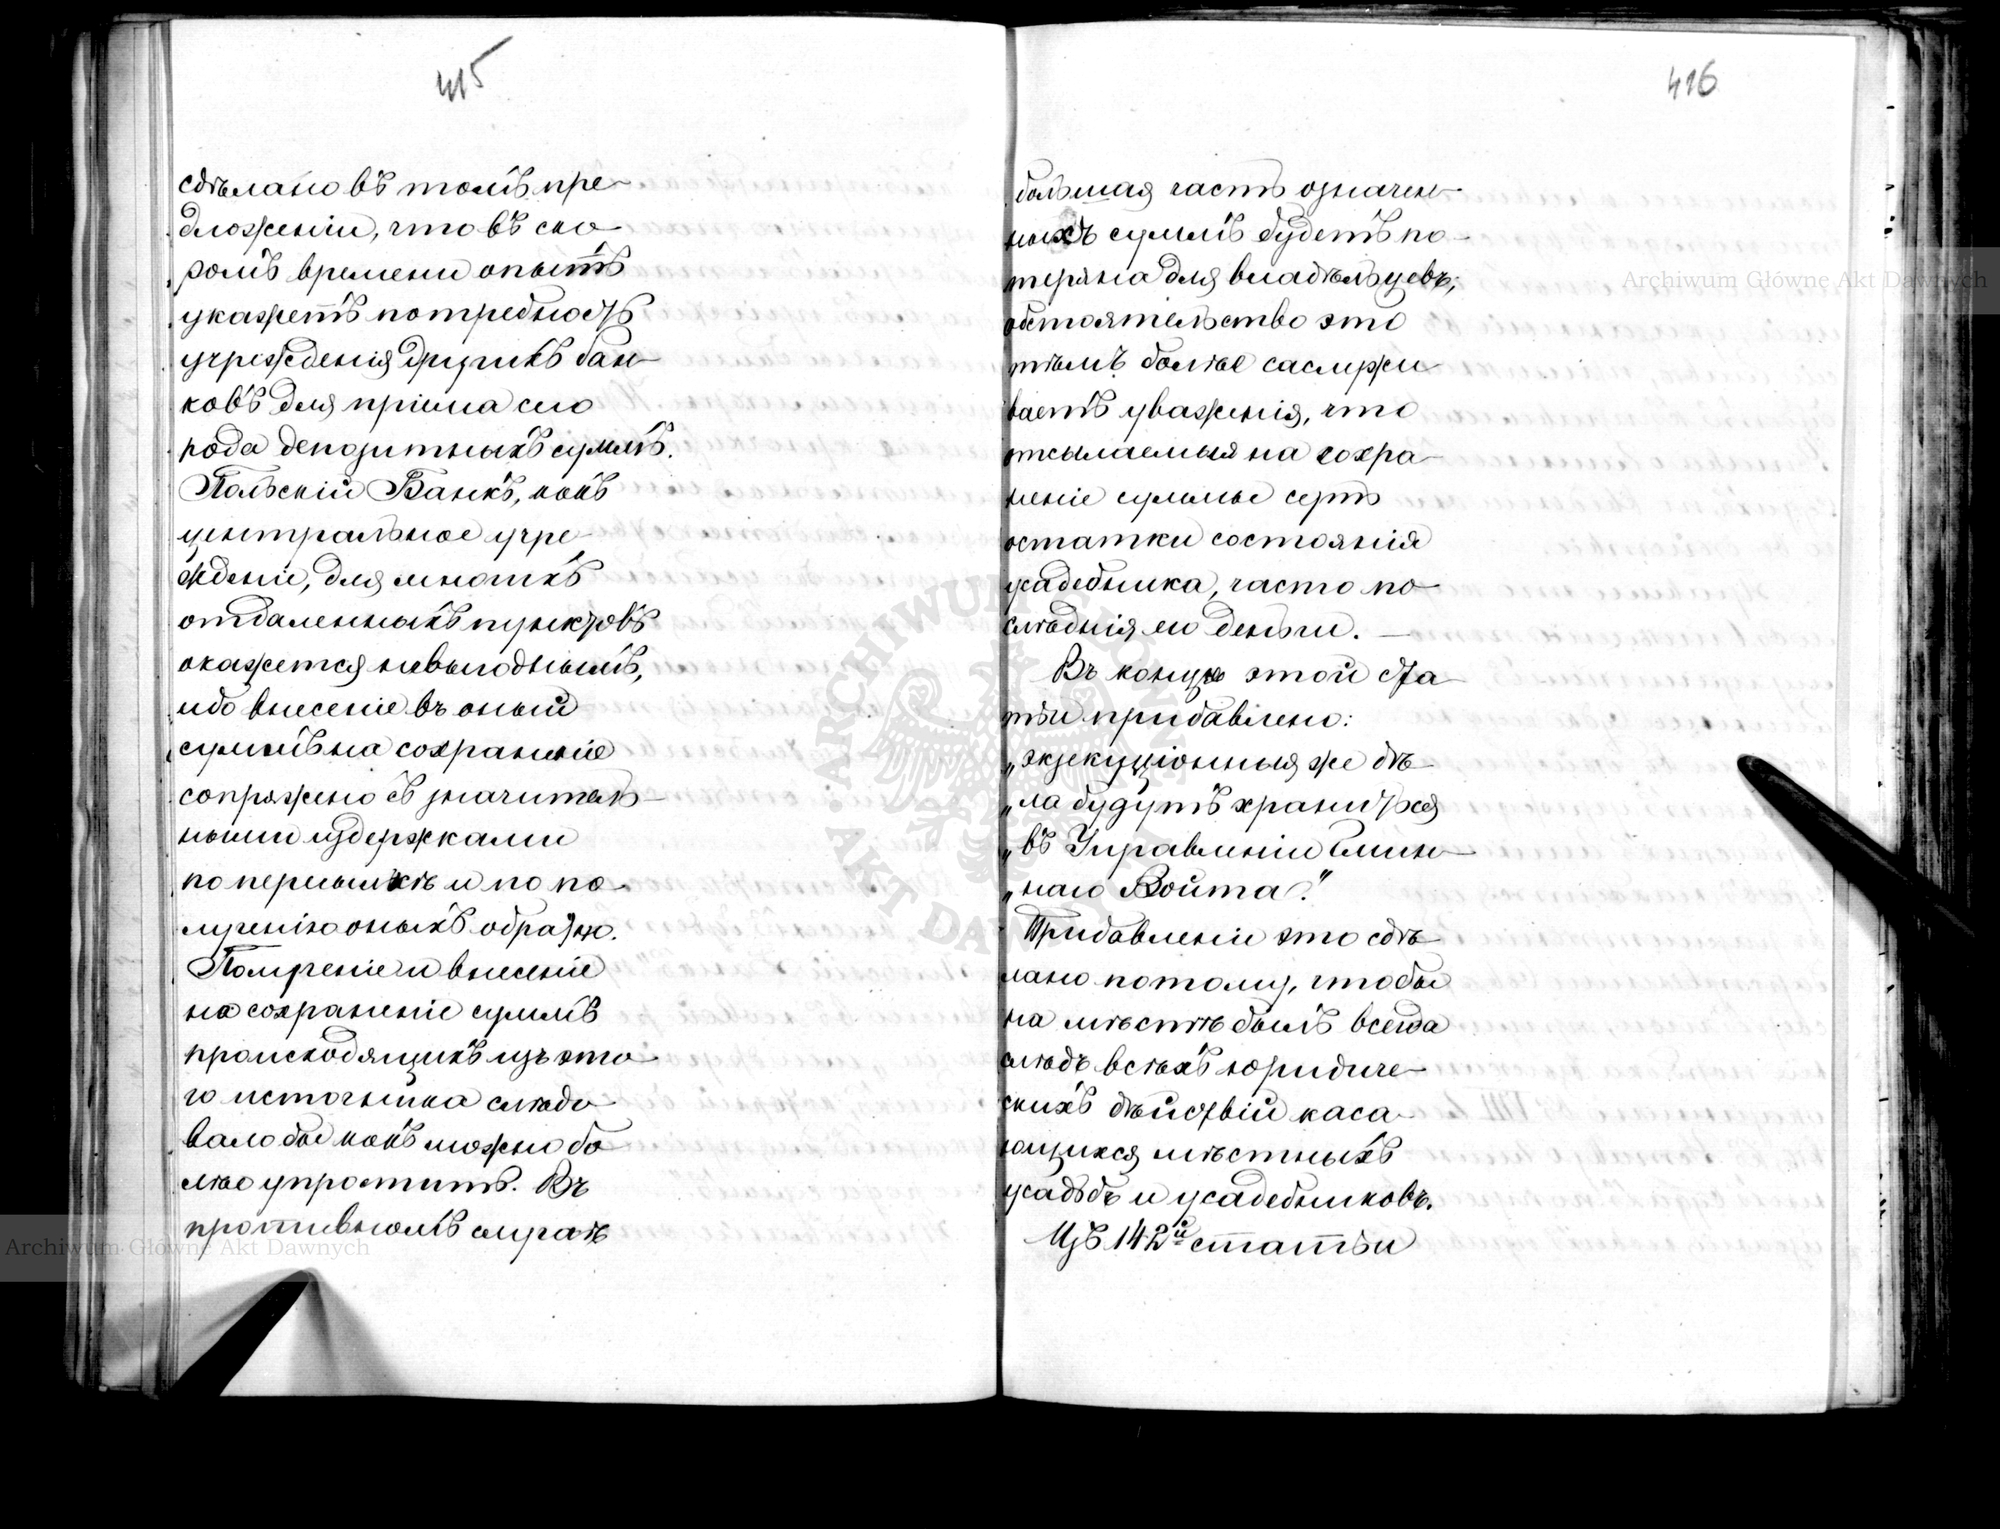 415
сдѣлано въ томъ пре-
дложеніи, что въ ско-
ромъ времени опытъ
укажетъ потребность
учрежденія другихъ бан-
ковъ для пріима сего
рода депозитныхъ суммъ.
Польскій Банкъ, какъ
центральное учре-
жденіе, для многихъ
отдаленныхъ пунктовъ
окажется невыгоднымъ,
ибо внесеніе въ оный
суммъ на сохраненіе
сопряжено съ значитель-
ными издержками
по пересылкѣ и по по-
лученію оныхъ обратно.
Полученіе и внесеніе
на сохраненіе суммъ
происходящихъ изъ это-
го источника слѣдо-
вало бы какъ можно бо-
лѣе упростить. Въ
противномъ случаѣ
416
большая часть означен-
ныхъ суммъ будетъ по-
теряна для владѣльцевъ;
обстоятельство это
тѣмъ болѣе заслужи-
ваетъ уваженія, что
отсылаемыя на сохра-
неніе суммы суть
остатки состоянія
усадебника, часто по-
слѣднія его деньги. —
Въ концѣ этой ста-
тьи прибавлено:
„экзекуціонныя же дѣ-
„ла будутъ храниться
„въ Управленіи Гмин-
„наго Войта."
Прибавленіе это сдѣ-
лано потому, чтобы
на мѣстѣ былъ всегда
слѣдъ всѣхъ юридиче-
скихъ дѣйствій каса-
ющихся мѣстныхъ
усадьбъ и усадебниковъ.
Изъ 142й статьи
Archiwum Główne Akt Dawnych
Archiwum Główne Akt Dawnych
ARCHIWUM GŁÓWNE AKT DAWNYCH